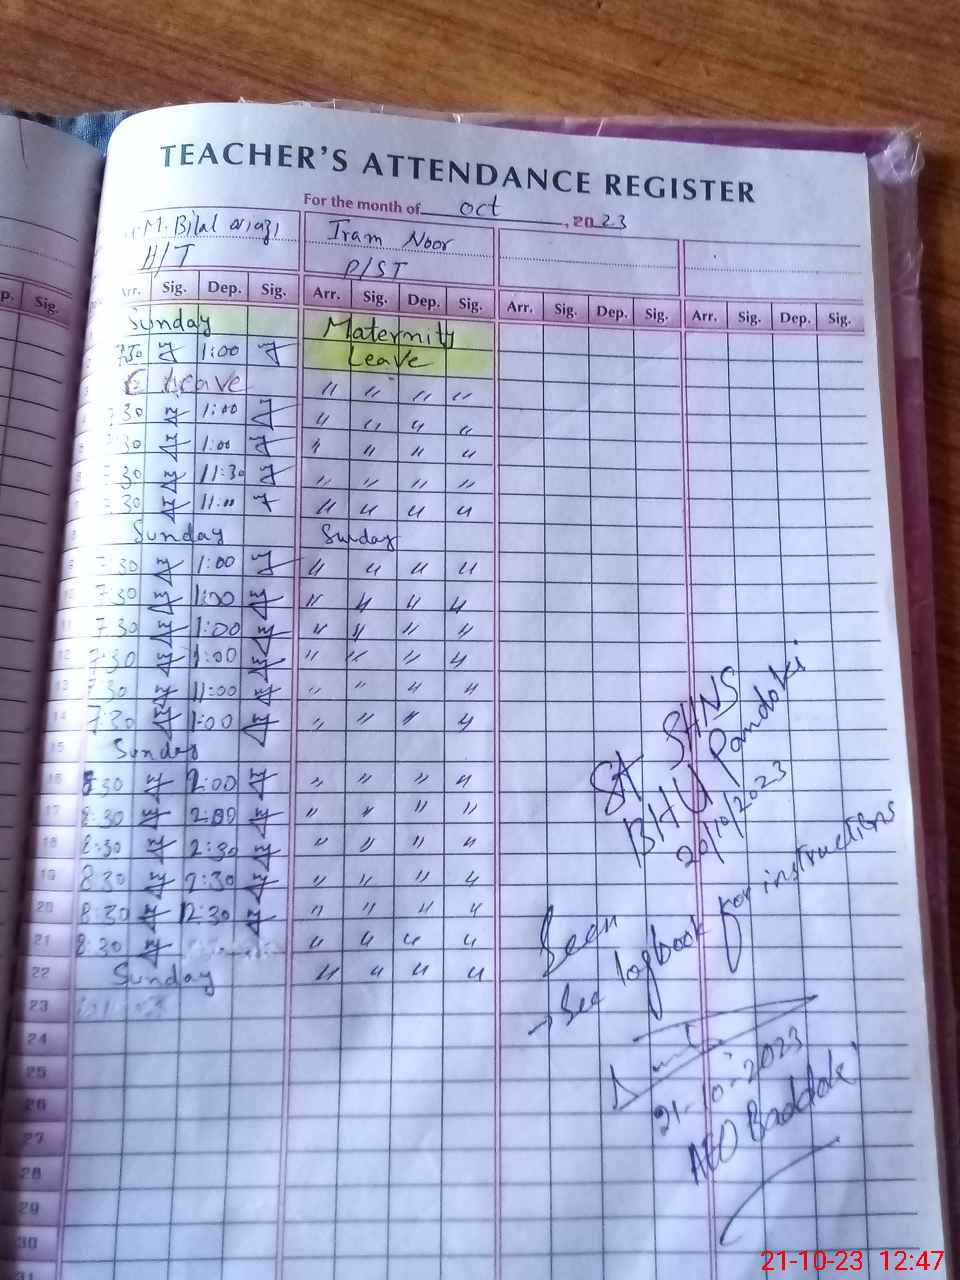 TEACHER'S ATTENDANCE REGISTER
For the month of oct, 2023
M. Bilal Iram Noor
H/T P/ST
p. Sig. Arr. Sig. Dep. Sig. Arr. Sig. Dep. Sig. Arr. Sig. Dep. Sig. Arr. Sig. Dep. Sig.
Sunday Maternity
1:00 Leave
Leave " " " "
30 1:00 " " " "
30 1:00 " " " "
30 11:30 " " " "
30 11:00 " " " "
Sunday Sunday
30 1:00 " " " "
7 30 1:00 " " " "
7 30 1:00 " " " "
12 7:30 1:00 " " " "
7 30 11:00 " " " "
14 7:30 1:00 " " " "
15 Sunday
16 8:30 2:00 " " " "
17 8:30 2:00 " " " "
18 8:30 2:30 " " " "
19 8:30 2:30 " " " "
20 8:30 12:30 " " " "
21 8:30 " " " "
22 Sunday " " " "
23
24
25
26
27
28
29
30
31
SHNS
BHU Pandoki
20/10/2023
Seen
→ See logbook for instructions
21-10-2023
AEO Baddoki
21-10-23 12:47